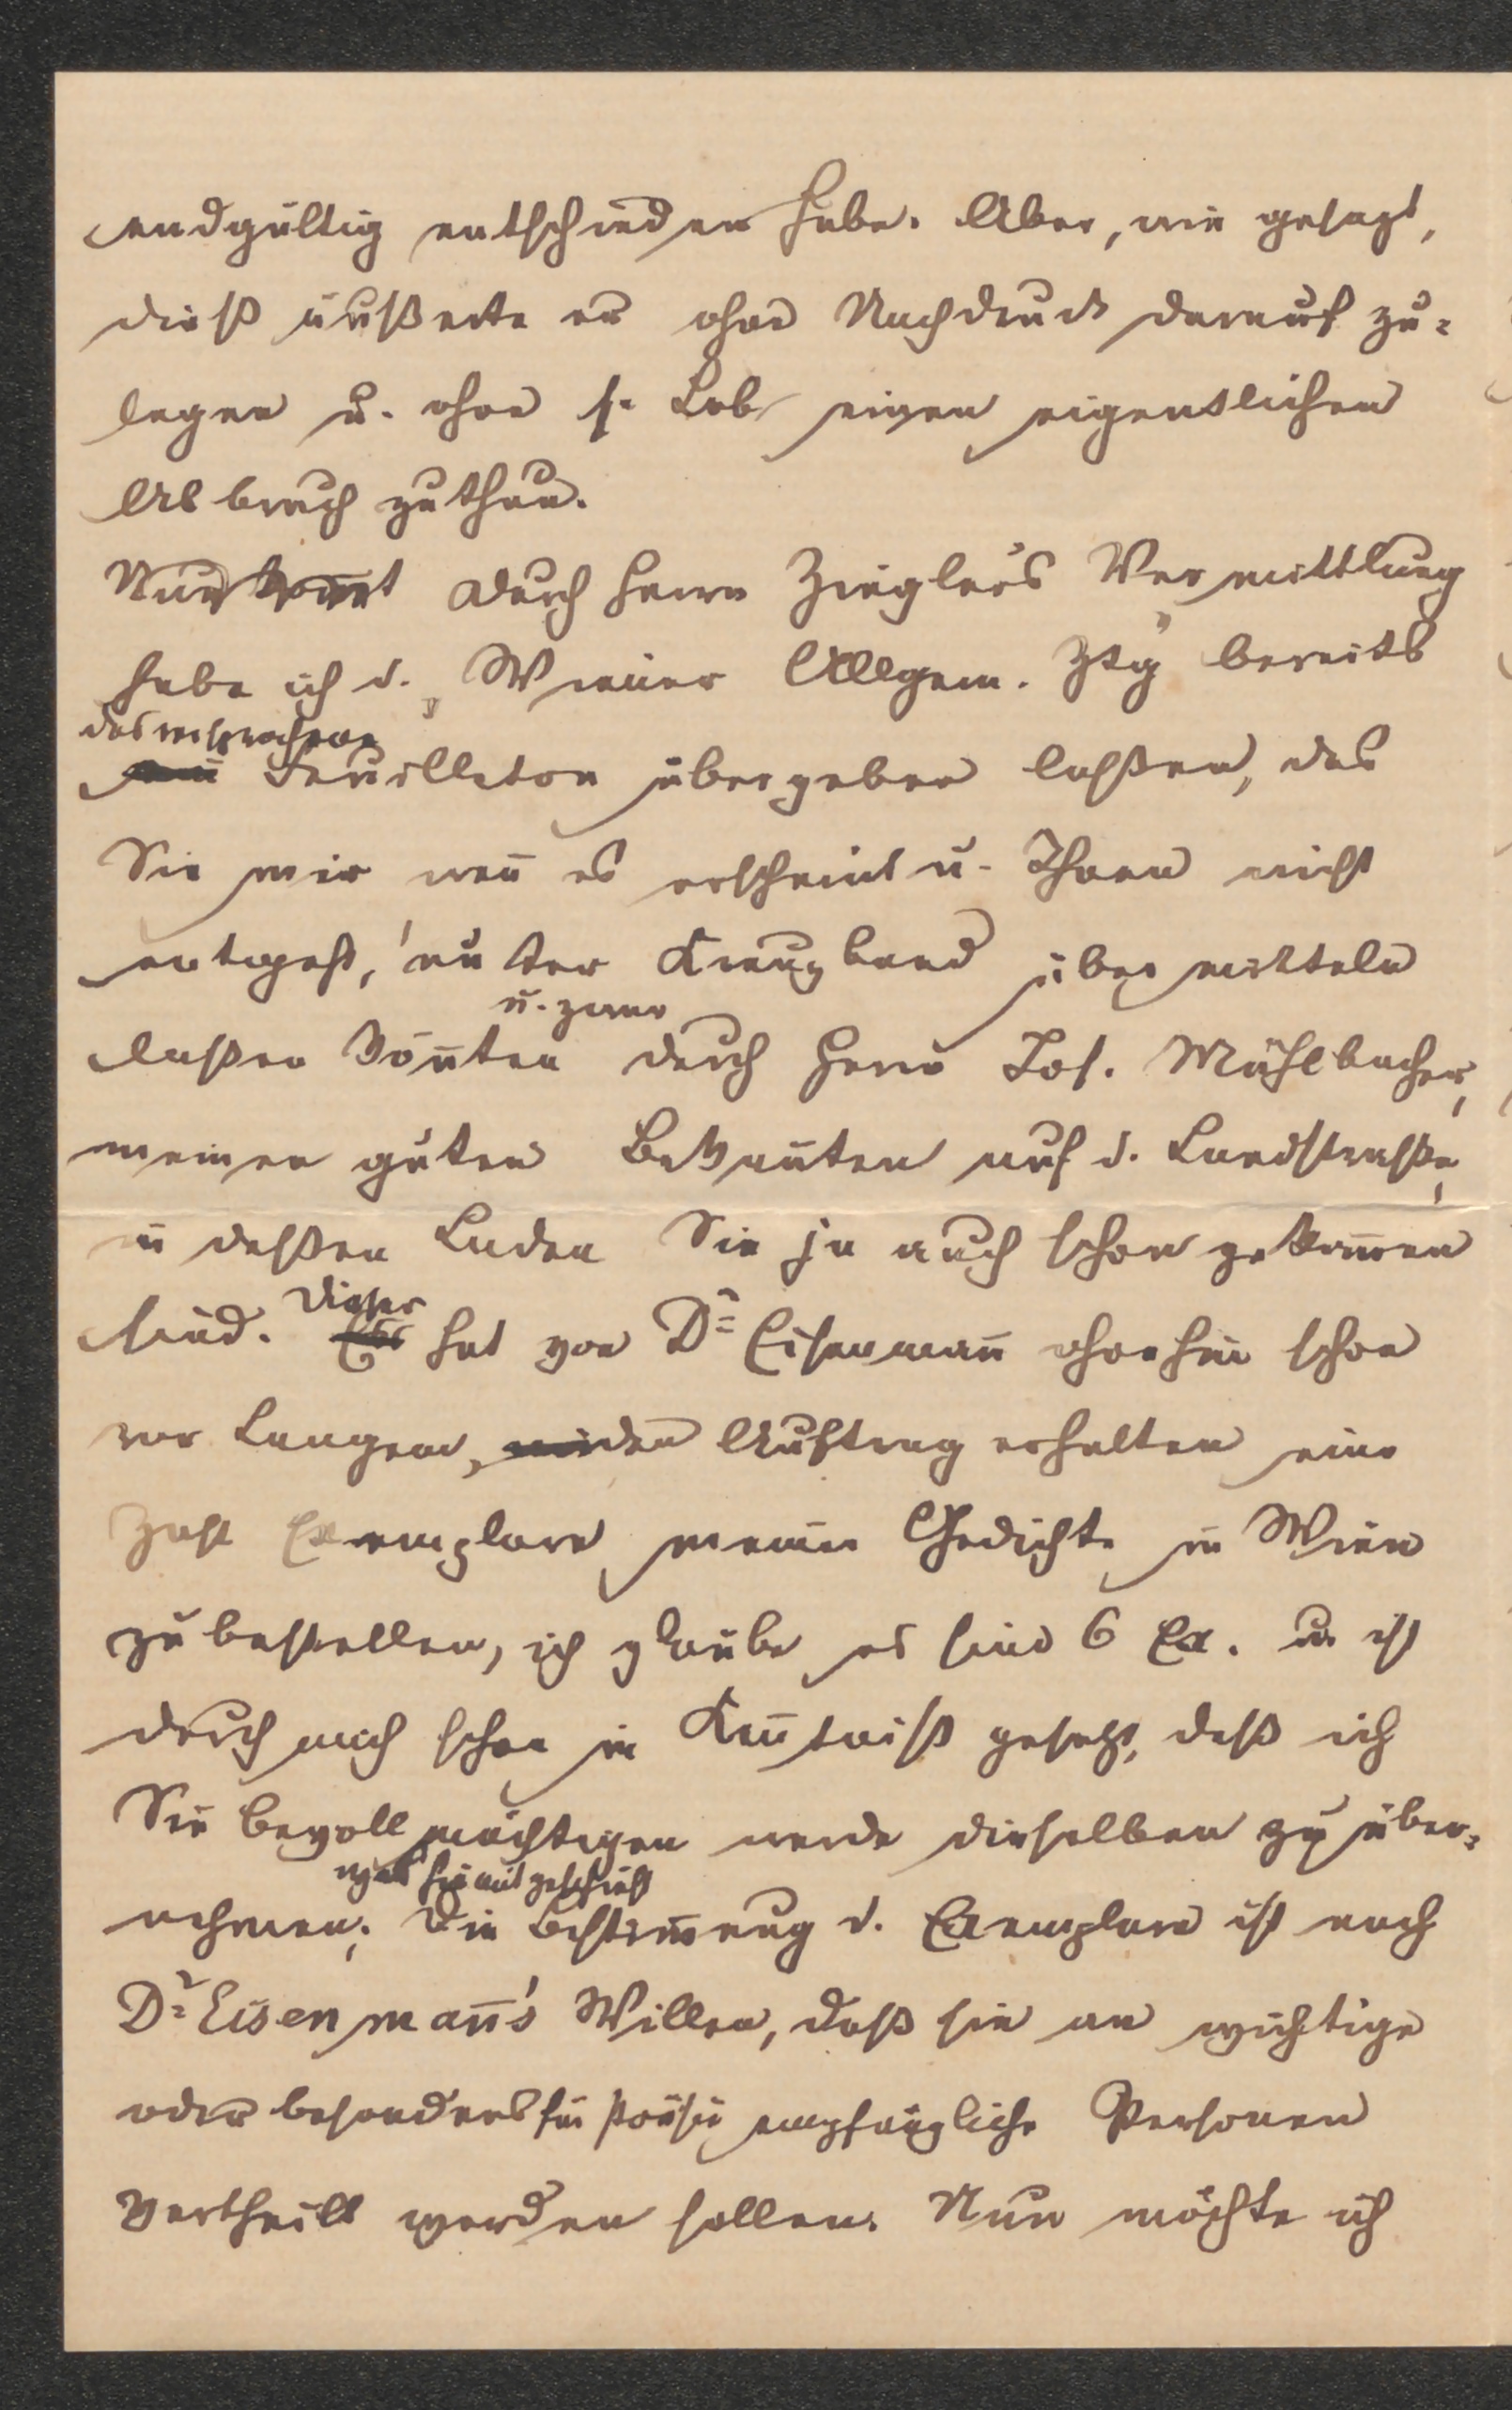 endgültig entschieden habe. Aber, wie gesagt,
dieß äußerte er ohne Nachdruck darauf zu-
legen u. ohne s. Lob einen eigentlichen
Abbruch zuthun.
Nun kom̅t durch Herrn Ziegler's Vermittlung
habe ich d. „Wiener Allgem. Ztg" bereits
das versprochene
Feuilleton übergeben laßen, das
Sie mir wen̅ es erscheint u. Ihnen nicht
entgeht, unter Kreuzband übermitteln
u. zwar
laßen kön̅ten durch Herrn Jos. Mühlbacher,
meinen guten Bekan̅ten auf d. Landstraße,
in deßen Laden Sie ja auch schon gekom̅en
Dieser
sind. Er hat von Dr Eisenman̅ ohnehin schon
vor Langem, den Auftrag erhalten eine
Zahl Exemplare meiner Gedichte in Wien
zu bestellen, ich glaube es sind 6 Ex. u. ist
durch mich schon in Ken̅tniß gesetzt, daß ich
Sie bevollmächtigen werde dieselben zu über-
was hiemit geschieht
nehmen; Die Bestim̅ung d. Exemplare ist nach
Dr Eisenman̅'s Willen, daß sie an wichtige
oder besonders für Poësie empfängliche Personen
vertheilt werden sollen. Nun möchte ich